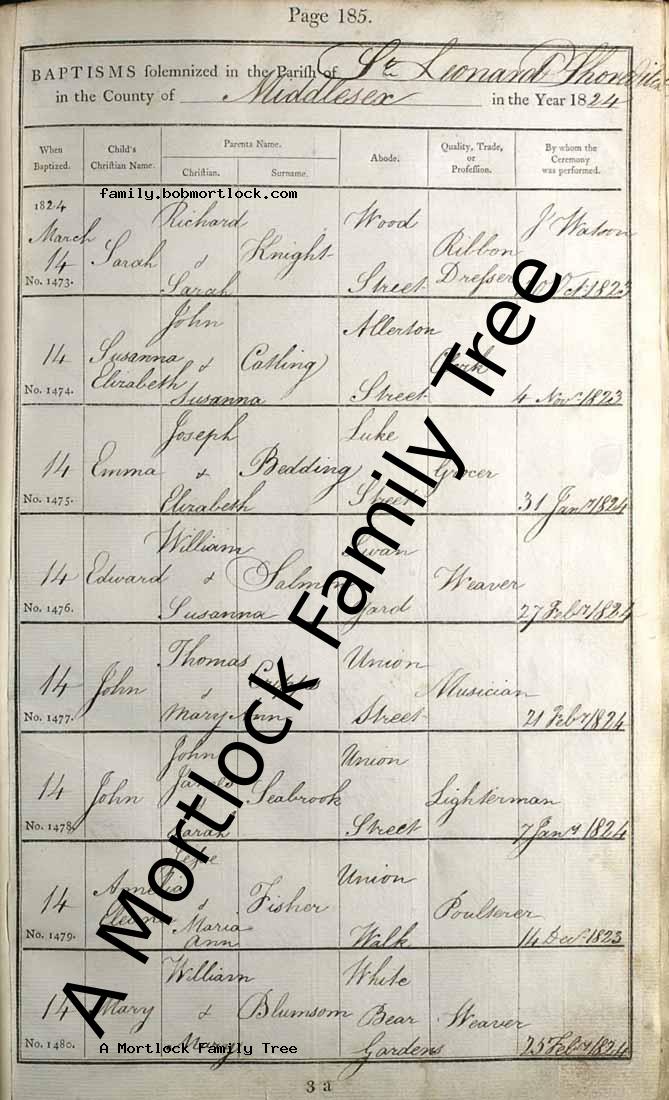 Page 185.
BAPTISMS solemnized in the Parish of St Leonard Shoreditch
in the County of Middlesex in the Year 1824
When Baptized. Child's Christian Name. Parents Name. Christian. Surname. Abode. Quality, Trade, or Profession. By whom the Ceremony was performed.
family.bobmortlock.com
1824
March
14
No. 1473.
Sarah
Richard
&
Sarah
Knight
Wood
Street
Ribbon
Dresser
J Watson
Oct 1823
14
No. 1474.
Susanna
Elizabeth
John
&
Susanna
Catling
Allerton
Street
Clerk
4 Nov 1823
14
No. 1475.
Emma
Joseph
&
Elizabeth
Bedding
Luke
Street
Grocer
31 Jany 1824
14
No. 1476.
Edward
William
&
Susanna
Salmon
Swan
Yard
Weaver
27 Feby 1824
14
No. 1477.
John
Thomas
&
Mary Ann
Union
Street
Musician
21 Feby 1824
14
No. 1478.
John
John
James
&
Sarah
Seabrook
Union
Street
Lighterman
7 Jany 1824
14
No. 1479.
Amelia
&
Maria
Ann
Fisher
Union
Walk
Poulterer
14 Decr 1823
14
No. 1480.
Mary
William
&
Mary
Blumsom
White
Bear
Gardens
Weaver
25 Feby 1824
3 a
A Mortlock Family Tree
A Mortlock Family Tree